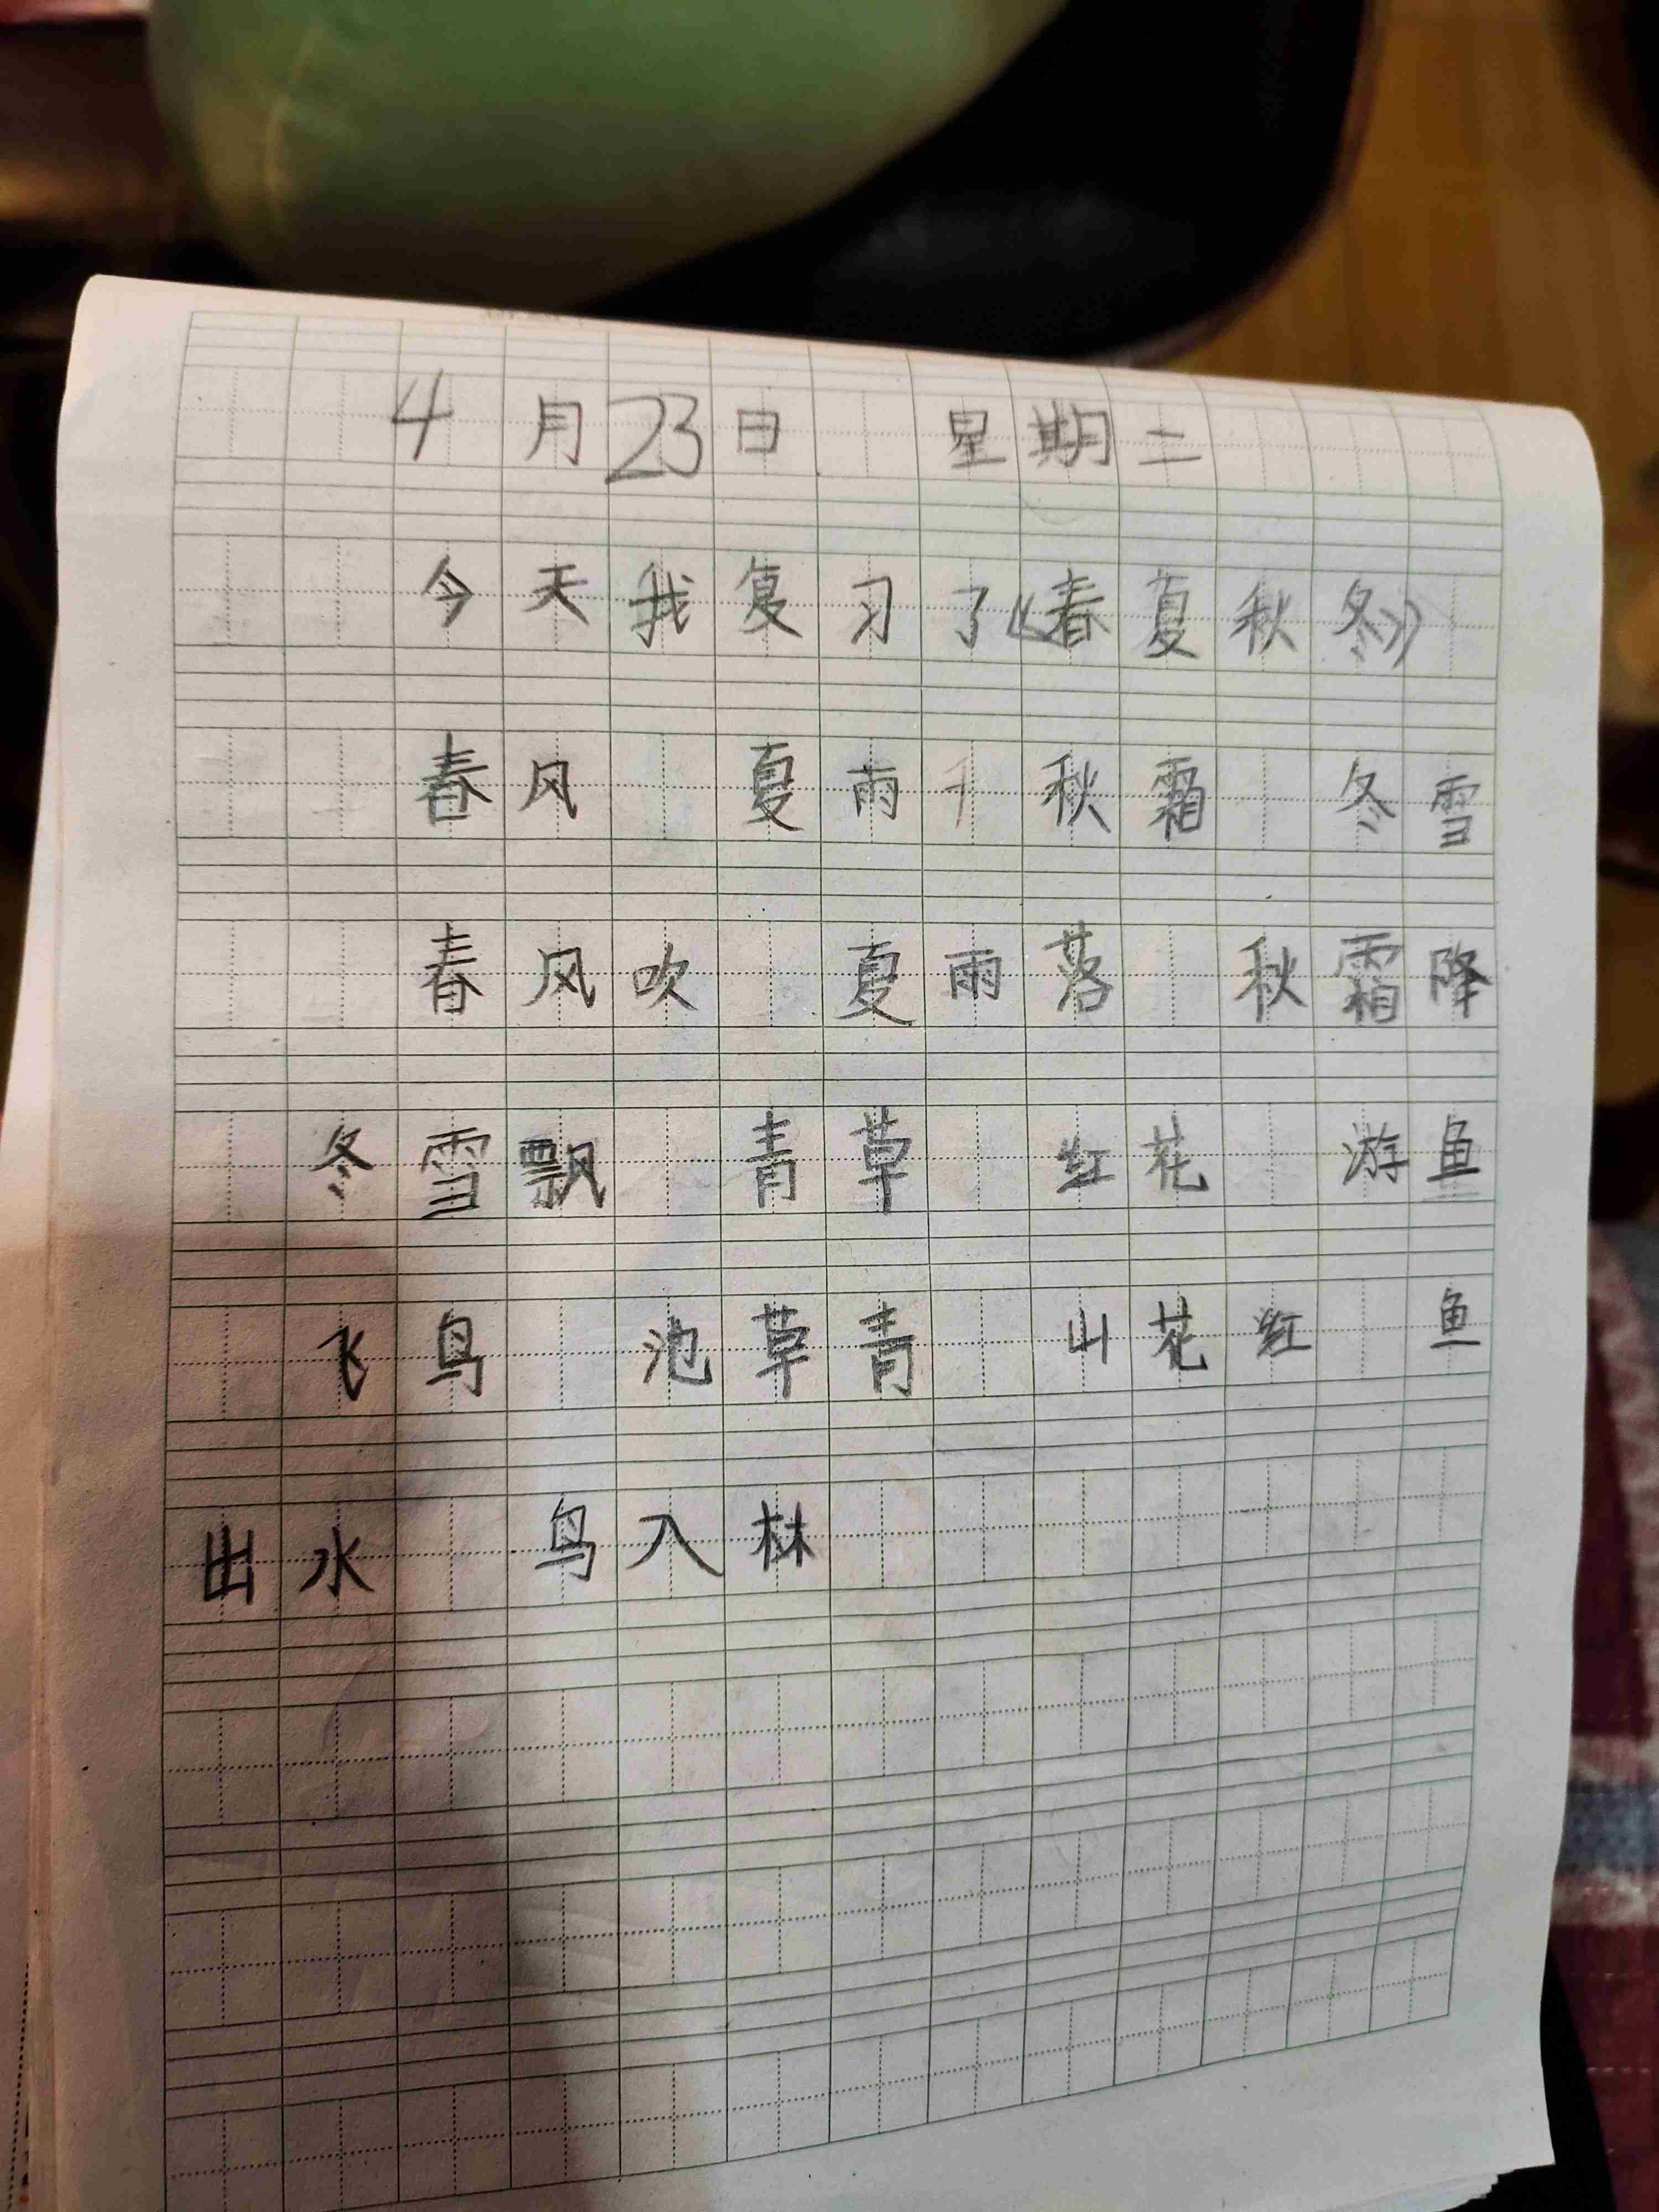 4月23日 星期二
今天我复习了《春夏秋冬》
春风 夏雨 秋霜 冬雪
春风吹 夏雨落 秋霜降
冬雪飘 青草 红花 游鱼
飞鸟 池草青 山花红 鱼
出水 鸟入林